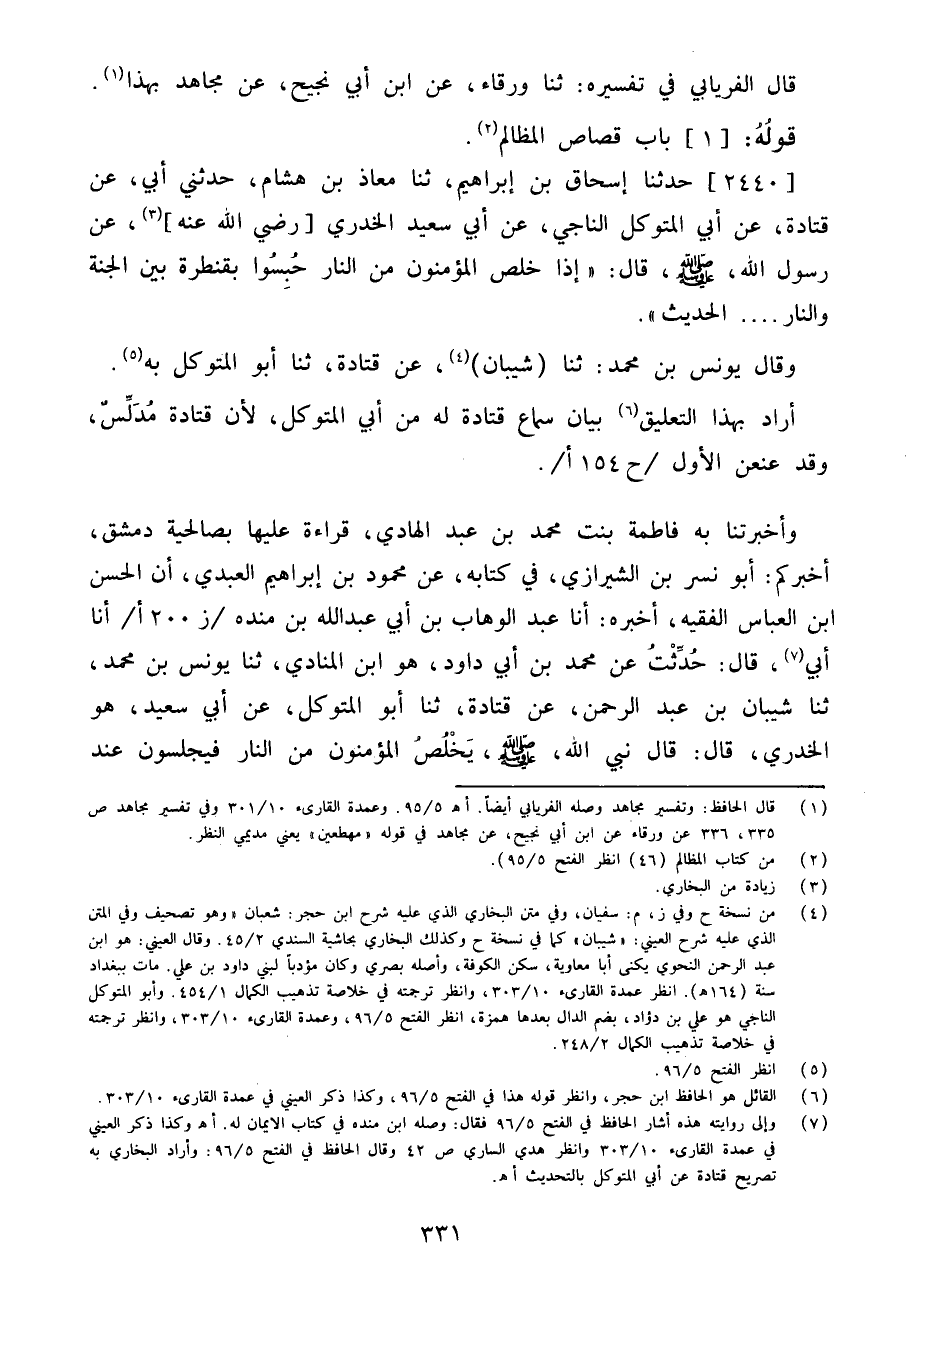 قال الفريابي في تفسيره: ثنا ورقاء، عن ابن أبي نجيح، عن مجاهد بهذا(١).
قولُهُ: [١] باب قصاص المظالم(٢).
[٢٤٤٠] حدثنا إسحاق بن إبراهيم، ثنا معاذ بن هشام، حدثني أبي، عن
قتادة، عن أبي المتوكل الناجي، عن أبي سعيد الخدري [رضي الله عنه](٣)، عن
رسول الله، ﷺ، قال: «إذا خلص المؤمنون من النار حُبِسُوا بقنطرة بين الجنة
والنار.... الحديث».
وقال يونس بن محمد: ثنا (شيبان)(٤)، عن قتادة، ثنا أبو المتوكل به(٥).
أراد بهذا التعليق(٦) بيان سماع قتادة له من أبي المتوكل، لأن قتادة مُدَلِّسٌ،
وقد عنعن الأول /ح ١٥٤ أ/.
وأخبرتنا به فاطمة بنت محمد بن عبد الهادي، قراءة عليها بصالحية دمشق،
أخبركم: أبو نسر بن الشيرازي، في كتابه، عن محمود بن إبراهيم العبدي، أن الحسن
ابن العباس الفقيه، أخبره: أنا عبد الوهاب بن أبي عبدالله بن منده /ز ٢٠٠ أ/ أنا
أبي(٧)، قال: حُدِّثْتُ عن محمد بن أبي داود، هو ابن المنادي، ثنا يونس بن محمد،
ثنا شيبان بن عبد الرحمن، عن قتادة، ثنا أبو المتوكل، عن أبي سعيد، هو
الخدري، قال: قال نبي الله، ﷺ، يَخْلُصُ المؤمنون من النار فيجلسون عند
(١) قال الحافظ: وتفسير مجاهد وصله الفريابي أيضاً. أ ه ٩٥/٥. وعمدة القارىء ٣٠١/١٠ وفي تفسير مجاهد ص
٣٣٥، ٣٣٦ عن ورقاء عن ابن أبي نجيح، عن مجاهد في قوله «مهطعين» يعني مديمي النظر.
(٢) من كتاب المظالم (٤٦) انظر الفتح ٩٥/٥).
(٣) زيادة من البخاري.
(٤) من نسخة ح وفي ز، م: سفيان، وفي متن البخاري الذي عليه شرح ابن حجر: شعبان «وهو تصحيف وفي المتن
الذي عليه شرح العيني: «شيبان» كما في نسخة ح وكذلك البخاري بحاشية السندي ٤٥/٢. وقال العيني: هو ابن
عبد الرحمن النحوي يكنى أبا معاوية، سكن الكوفة، وأصله بصري وكان مؤدباً لبني داود بن علي. مات ببغداد
سنة (١٦٤ه). انظر عمدة القارىء ٣٠٣/١٠، وانظر ترجمته في خلاصة تذهيب الكمال ٤٥٤/١. وأبو المتوكل
الناجي هو علي بن دؤاد، بضم الدال بعدها همزة، انظر الفتح ٩٦/٥، وعمدة القارىء ٣٠٣/١٠، وانظر ترجمته
في خلاصة تذهيب الكمال ٢٤٨/٢.
(٥) انظر الفتح ٩٦/٥.
(٦) القائل هو الحافظ ابن حجر، وانظر قوله هذا في الفتح ٩٦/٥، وكذا ذكر العيني في عمدة القارىء ٣٠٣/١٠.
(٧) وإلى روايته هذه أشار الحافظ في الفتح ٩٦/٥ فقال: وصله ابن منده في كتاب الايمان له. أ ه وكذا ذكر العيني
في عمدة القارىء ٣٠٣/١٠ وانظر هدي الساري ص ٤٢ وقال الحافظ في الفتح ٩٦/٥: وأراد البخاري به
تصريح قتادة عن أبي المتوكل بالتحديث أ ه.
٣٣١